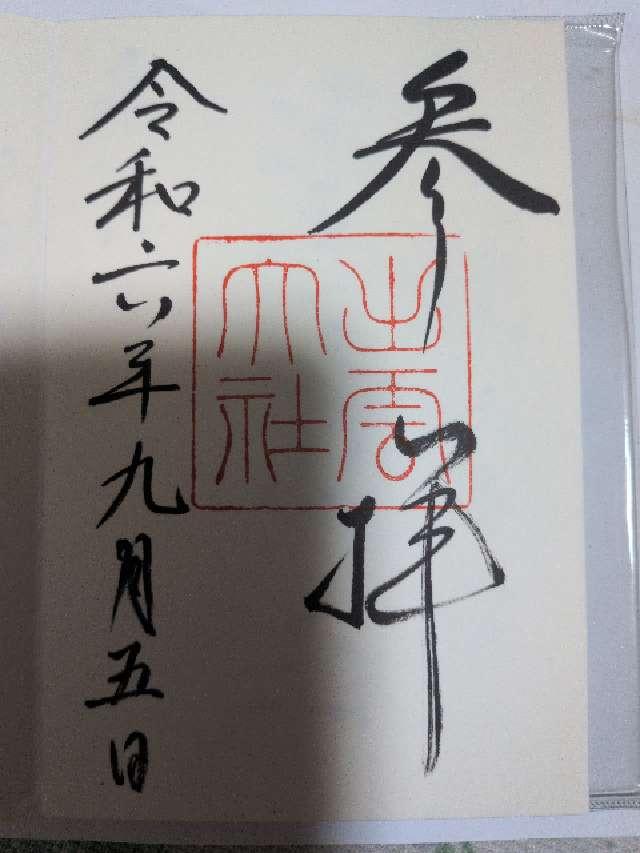 参拝
出雲
大社
令和六年九月五日